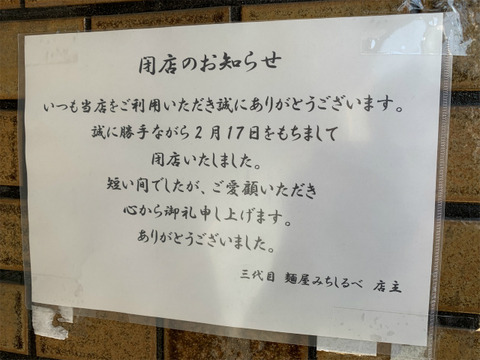 閉店のお知らせ
いつも当店をご利用いただき誠にありがとうございます。
誠に勝手ながら2月17日をもちまして
閉店いたしました。
短い間でしたが、ご愛顧いただき
心から御礼申し上げます。
ありがとうございました。
三代目 麺屋みちしるべ 店主